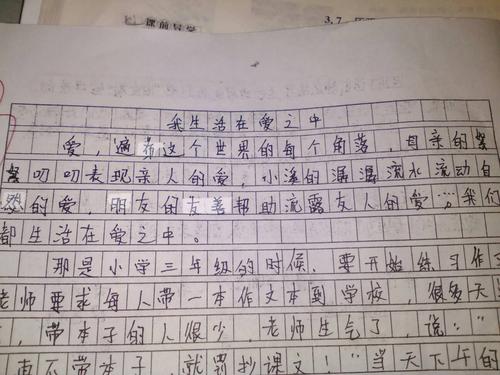 课前导学
3.7
我生活在爱之中
爱,遍布这个世界的每个角落,母亲的絮
絮叨叨表现亲人的爱,小溪的潺潺流水流动自
然的爱,朋友的友善帮助流露友人的爱……我们
都生活在爱之中。
那是小学三年级的时候,要开始练习作文
老师要求每人带一本作文本到学校,很多天
,带本子的人很少,老师生气了,说:“
再不带本子,就罚抄课文!”当天下午的